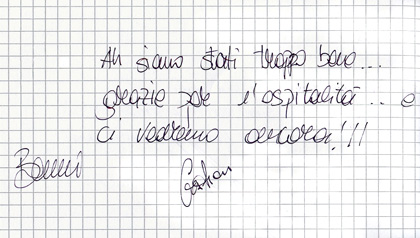 Ah siamo stati troppo bene...
grazie per l'ospitalità... e
ci vedremo ancora!!!